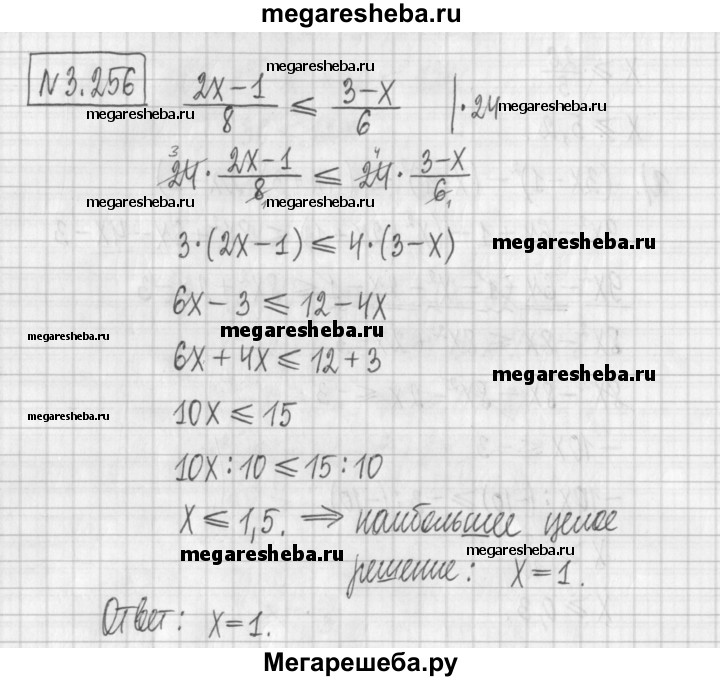 megaresheba.ru
№3.256 (2x-1)/8 ⩽ (3-x)/6 | ·24
megaresheba.ru
megaresheba.ru megaresheba.ru
24³ · (2x-1)/8₁ ⩽ 24⁴ · (3-x)/6₁
megaresheba.ru megaresheba.ru
3·(2x-1) ⩽ 4·(3-x) megaresheba.ru
6x-3 ⩽ 12-4x
megaresheba.ru megaresheba.ru
6x+4x ⩽ 12+3
megaresheba.ru
10x ⩽ 15
megaresheba.ru
10x:10 ⩽ 15:10
x ⩽ 1,5. ⇒ наибольшее целое
megaresheba.ru megaresheba.ru
решение: x=1.
Ответ: x=1.
Мегарешеба.ру